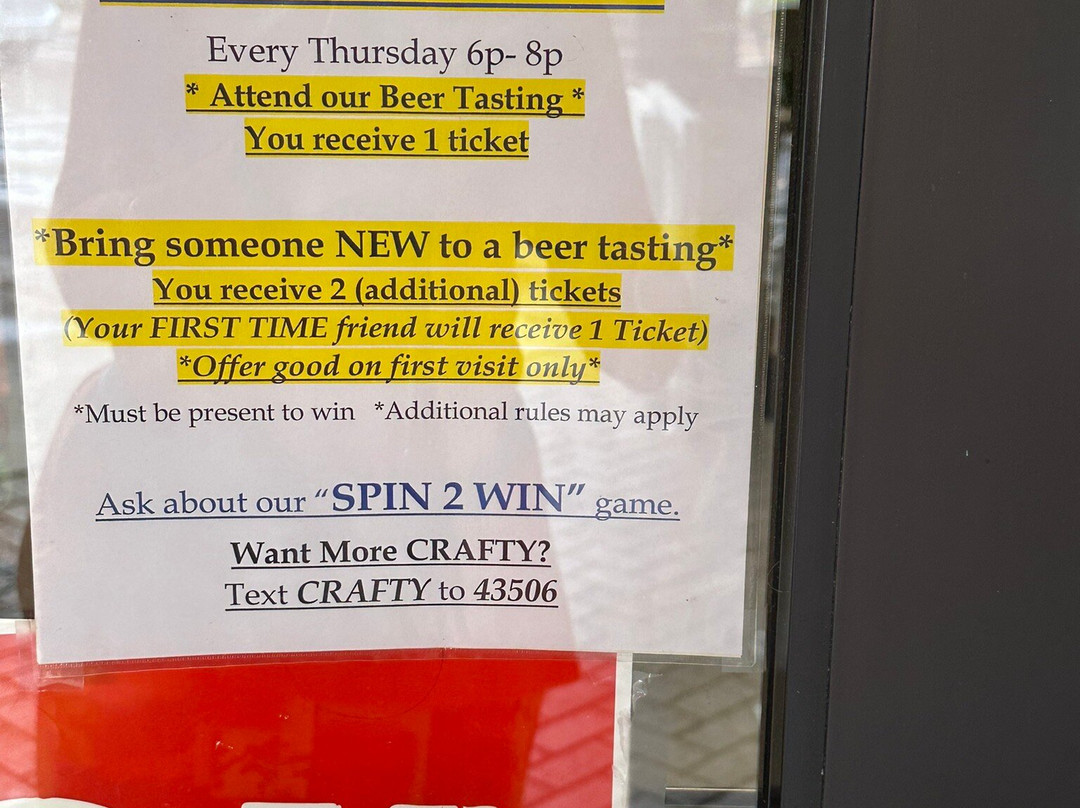 Every Thursday 6p- 8p
* Attend our Beer Tasting *
You receive 1 ticket
*Bring someone NEW to a beer tasting*
You receive 2 (additional) tickets
(Your FIRST TIME friend will receive 1 Ticket)
*Offer good on first visit only*
*Must be present to win *Additional rules may apply
Ask about our “SPIN 2 WIN” game.
Want More CRAFTY?
Text CRAFTY to 43506